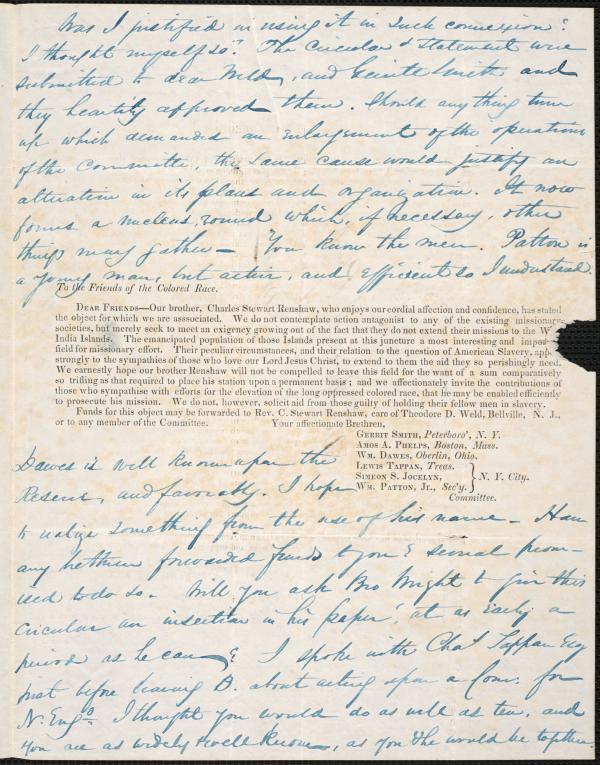 Was I justified in using it in such connexion?
I thought myself so? The Circular & statement were
submitted to dear Weld, and Gerrite Smith and
they heartily approved them. Should any thing turn
up which demanded an enlargement of the operations
of the Committee, the same cause would justify an
alteration in its plans and organization. It now
forms a nucleus, round which, if necessary, other
things may gather — You know the men. Patton is
a young man, but active, and efficient so I understand.
To the Friends of the Colored Race.
DEAR FRIENDS—Our brother, Charles Stewart Renshaw, who enjoys our cordial affection and confidence, has stated
the object for which we are associated. We do not contemplate action antagonist to any of the existing missionary
societies, but merely seek to meet an exigency growing out of the fact that they do not extend their missions to the W
India Islands. The emancipated population of those Islands present at this juncture a most interesting and impor
field for missionary effort. Their peculiar circumstances, and their relation to the question of American Slavery, appe
strongly to the sympathies of those who love our Lord Jesus Christ, to extend to them the aid they so perishingly need.
We earnestly hope our brother Renshaw will not be compelled to leave this field for the want of a sum comparatively
so trifling as that required to place his station upon a permanent basis; and we affectionately invite the contributions of
those who sympathise with efforts for the elevation of the long oppressed colored race, that he may be enabled efficiently
to prosecute his mission. We do not, however, solicit aid from those guilty of holding their fellow men in slavery.
Funds for this object may be forwarded to Rev. C. Stewart Renshaw, care of Theodore D. Weld, Bellville, N. J.,
or to any member of the Committee. Your affectionate Brethren,
GERRIT SMITH, Peterboro', N. Y.
AMOS A. PHELPS, Boston, Mass.
WM. DAWES, Oberlin, Ohio.
LEWIS TAPPAN, Treas.
SIMEON S. JOCELYN, N. Y. City.
WM. PATTON, Jr., Sec'y.
Committee.
Dawes is well known upon the
Reserve, and favorably. I hope
to realize something from the use of his name — Have
any brethren forwarded funds to you? several prom-
ised to do so — Will you ask Bro Wright to give this
Circular an insertion in his paper, at as early a
period as he can? I spoke with Chas Tappan Esq
just before leaving B. about acting upon a Com: for
N. Engd. I thought you would do as well as ten, and
you are as widely & well known, as you & he would be together.